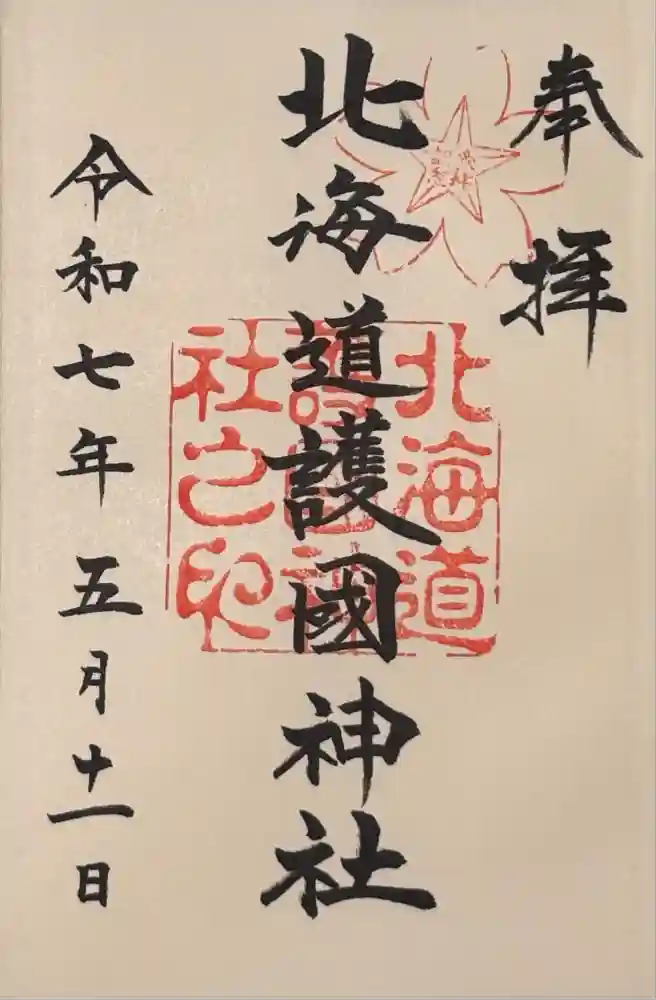 奉拝
北海道護國神社
北海道
護国神
社之印
令和七年五月十一日